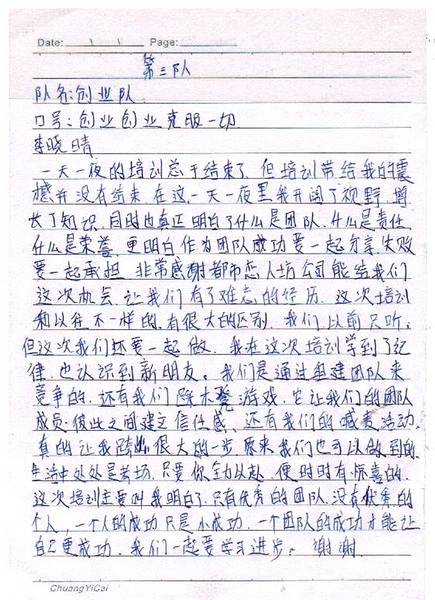 Date: \ \ Page:
第三队
队名:创业队
口号:创业创业克服一切
李晓晴
一天一夜的培训总于结束了,但培训带给我的震
撼并没有结束.在这一天一夜里我开阔了视野.增
长了知识.同时也真正明白了什么是团队.什么是责任
什么是荣誉.更明白作为团队成功要一起分享.失败
要一起承担.非常感谢都市恋人坊公司能给我们
这次机会.让我们有了难忘的经历.这次培训
和以往不一样的.有很大的区别.我们以前只听,
但这次我们还要一起做.我在这次培训学到了纪
律.也认识到新朋友.我们是通过组建团队来
竞争的.还有我们 游戏.它让我们的团队
成员彼此之间建立信任感.还有我们的喊麦活动.
真的让我跨 很大的一步.原来我们也可以做到的.
生活中处处是考场.只要你全力以赴.便时时有惊喜的.
这次培训主要叫我明白了.只有优秀的团队.没有优秀的
个人.一个人的成功只是小成功.一个团队的成功才能让
自己更成功.我们一起要学习进步。谢谢
ChuangYiCai